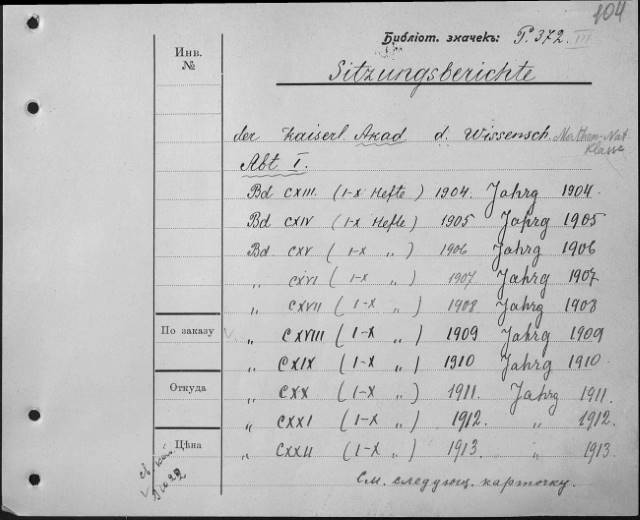 104
Библіот. значекъ: Р. 372. III
Инв.
№
Sitzungsberichte
der Kaiserl Akad d. Wissensch. Mathem-Nat
Klasse
Abt I.
Bd CXIII. (I-X Hefte) 1904. Jahrg 1904.
Bd CXIV (I-X Hefte) 1905 Jahrg 1905
Bd CXV (I-X „) 1906 Jahrg 1906
„ CXVI (I-X „) 1907 Jahrg 1907
„ CXVII (I-X „) 1908 Jahrg 1908
По заказу
„ CXVIII (I-X „) 1909 Jahrg 1909
„ CXIX (I-X „) 1910 Jahrg 1910
Откуда
„ CXX (I-X „) 1911. Jahrg 1911.
„ CXXI (I-X „) 1912. „ 1912.
Цѣна
„ CXXII (I-X „) 1913. „ 1913.
См. следующ. карточку.